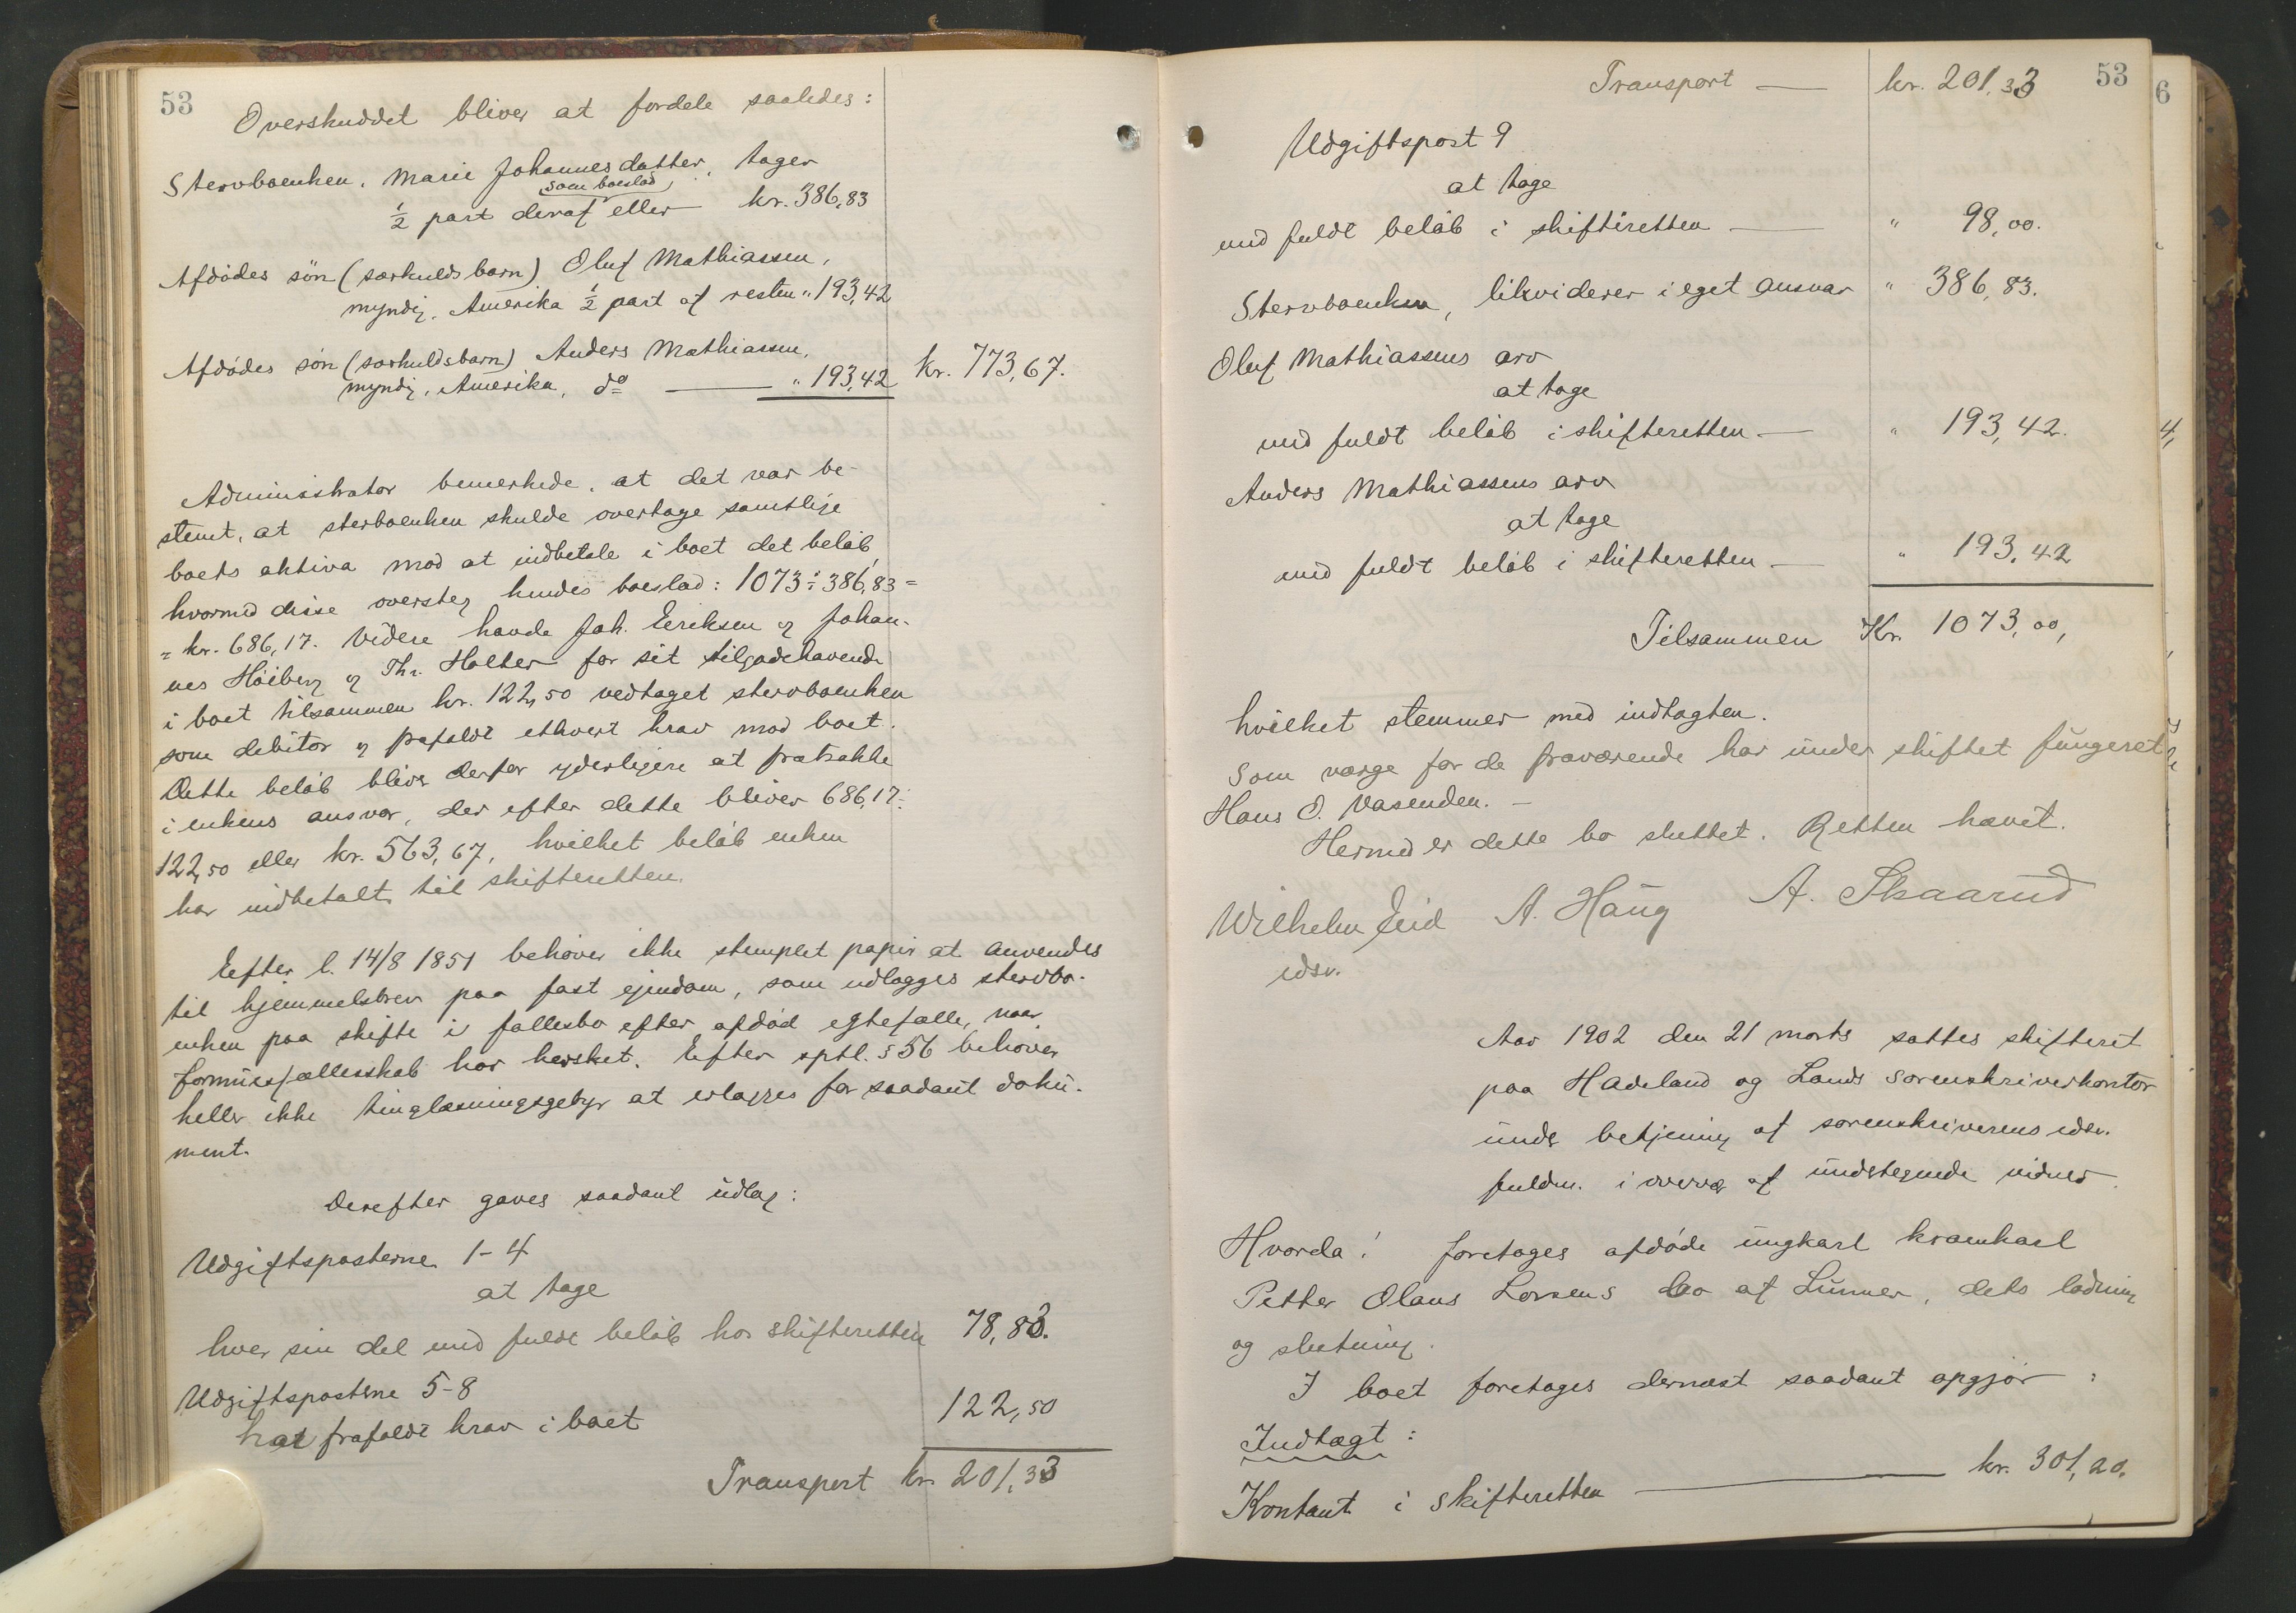 53
Overskuddet bliver at fordele saaledes:
Stervboenken, Marie Johannesdatter, tager
som boeslod
½ part deraf eller kr. 386,83
Afdødes søn (særkuldsbarn) Oluf Mathiassen,
myndig, Amerika ½ part af resten " 193,42
Afdødes søn (særkuldsbarn) Anders Mathiassen,
myndig, Amerika, do — " 193,42 kr. 773,67.
Administrator bemerkede, at det var be-
stemt, at sterboenken skulde overtage samtlige
boets aktiva mod at indbetale i boet det beløb,
hvormed disse oversteg hendes boeslod: 1073 ÷ 386,83 =
= kr. 686,17. Videre havde Joh. Eriksen og Johan-
nes Høiberg og Thr. Holter for sit tilgodehavende
i boet tilsammen kr. 122,50 vedtaget stervboenken
som debitor og frafaldt ethvert krav mod boet.
Dette beløb bliver derfor yderligere at fratrække
i enkens ansvar, der efter dette bliver 686,17 ÷
122,50 eller kr. 563,67, hvilket beløb enken
har indbetalt til skifteretten.
Efter l. 14/8 1851 behøver ikke stemplet papir at anvendes
til hjemmelsbrev paa fast ejendom, som udlægges stervbo-
enken paa skifte i fællesbo efter afdød egtefælle, naar
formuesfællesskab har hersket. Efter sptl. § 56 behøver
heller ikke tinglæsningsgebyr at erlægges for saadant doku-
ment.
Derefter gaves saadant udlæg:
Udgiftsposterne 1-4
at tage
hver sin del med fuldt beløb hos skifteretten 78,83.
Udgiftsposterne 5-8
har frafaldt krav i boet 122,50
Transport kr. 201,33
Transport — kr. 201,33 53
6
Udgiftspost 9
at tage
med fuldt beløb i skifteretten — " 98,00.
Stervboenken, likviderer i eget ansvar " 386,83.
Oluf Mathiassens arv
at tage
med fuldt beløb i skifteretten — " 193,42.
4,
Anders Mathiassens arv
at tage
med fuldt beløb i skifteretten — " 193,42
Tilsammen Kr. 1073,00,
hvilket stemmer med indtægten.
Som verge for de fraværende har under skiftet fungeret
Hans O. Vasenden. —
Hermed er dette bo sluttet. Retten hævet.
Wilhelm Eid A. Haug A. Skaarud
edsv.
Aar 1902 den 21 marts sattes skifteret
paa Hadeland og Lands sorenskriverkontor
under betjening af sorenskriverens edsv.
fuldm. i overvær af undertegnede vidner.
Hvorda! foretages afdøde ungkarl kramkarl
Petter Olaus Larsens bo af Lunner, dets lodning
og slutning.
I boet foretages dernæst saadant opgjør:
Indtægt:
Kontant i skifteretten — kr. 301,20.